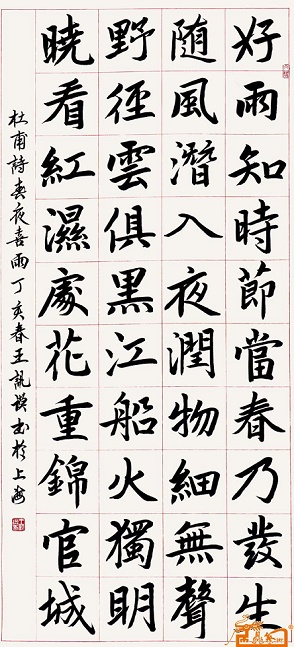 好雨知時節當春乃發生
随風潛入夜潤物細無聲
野徑雲俱黑江船火獨明
曉看紅濕處花重錦官城
杜甫詩春夜喜雨丁亥春王書於上海